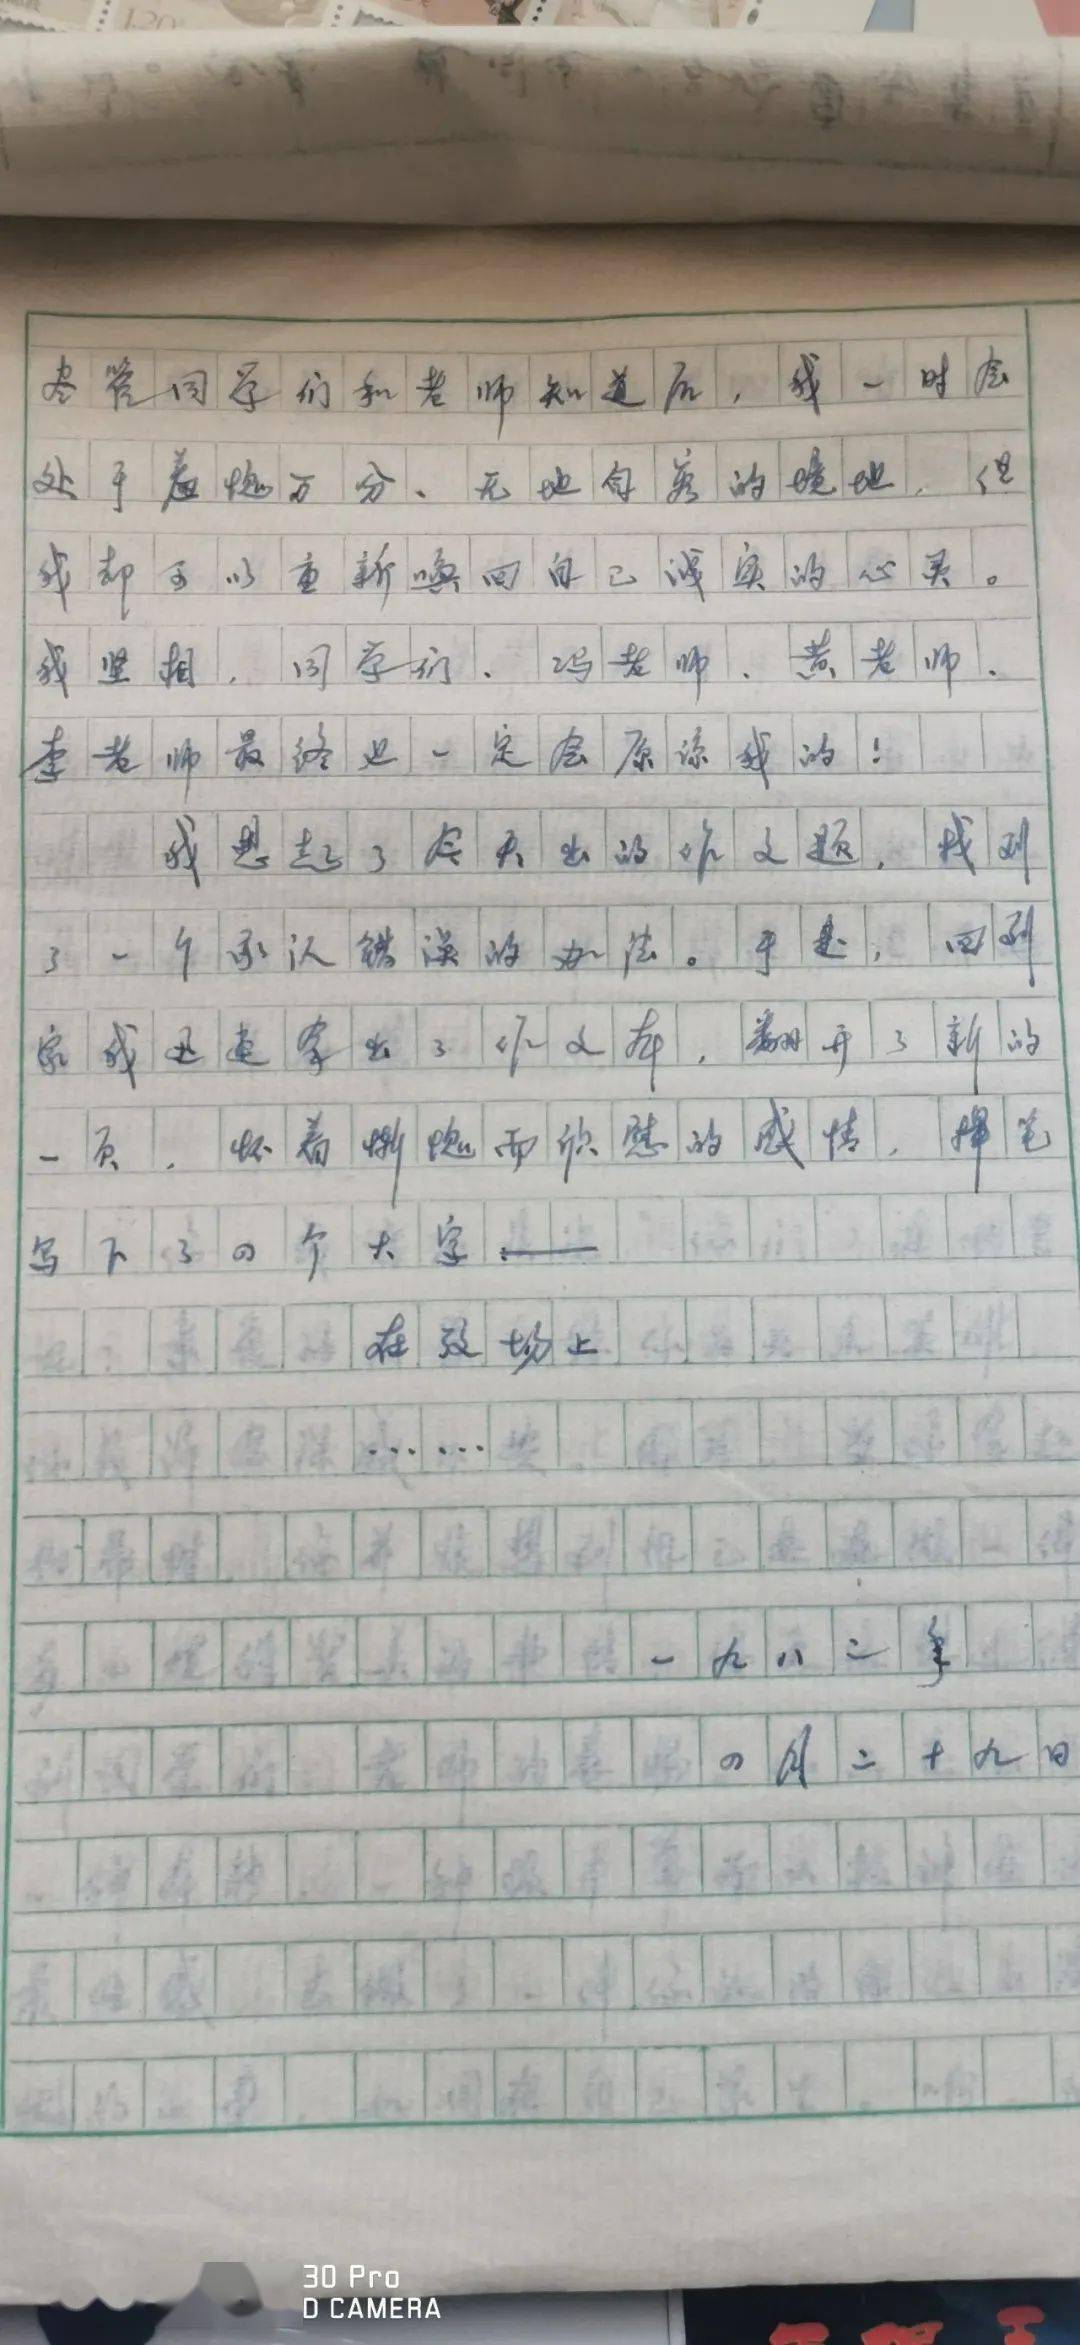 尽管同学们和老师知道后，我一时会
处于羞愧万分、无地自容的境地，但
我却可以重新唤回自己诚实的心灵。
我坚相，同学们、冯老师、黄老师、
李老师最终也一定会原谅我的！
我想起了今天出的作文题，找到
了一个承认错误的办法。于是，回到
家我迅速拿出了作文本，翻开了新的
一页，怀着惭愧而欣慰的感情，挥笔
写下了四个大字——
在考场上
……
一九八二年
四月二十九日
30 Pro
D CAMERA